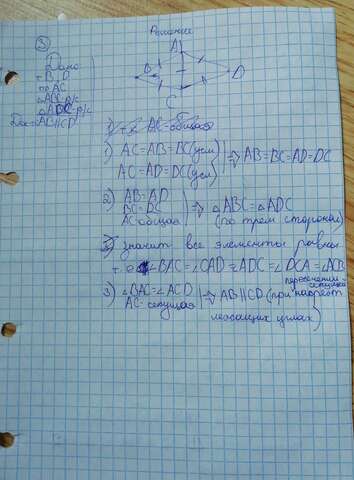 3
Решение
Дано
т B, D
пр AC
△ABC р/с
△ADC р/с
Док-ть AB∥CD
A
B
D
C
1) AC=AB=BC (усл)
AC=AD=DC (усл) ⇒ AB=BC=AD=DC
2) AB=AD
BC=DC
AC общая ⇒ △ABC=△ADC
(по трем сторонам)
значит все элементы равны
∠BAC=∠CAD=∠ADC=∠DCA=∠ACB
3) ∠BAC=∠ACD
AC-секущая ⇒ AB∥CD (при пересечении секущей накрест
лежащих углах)